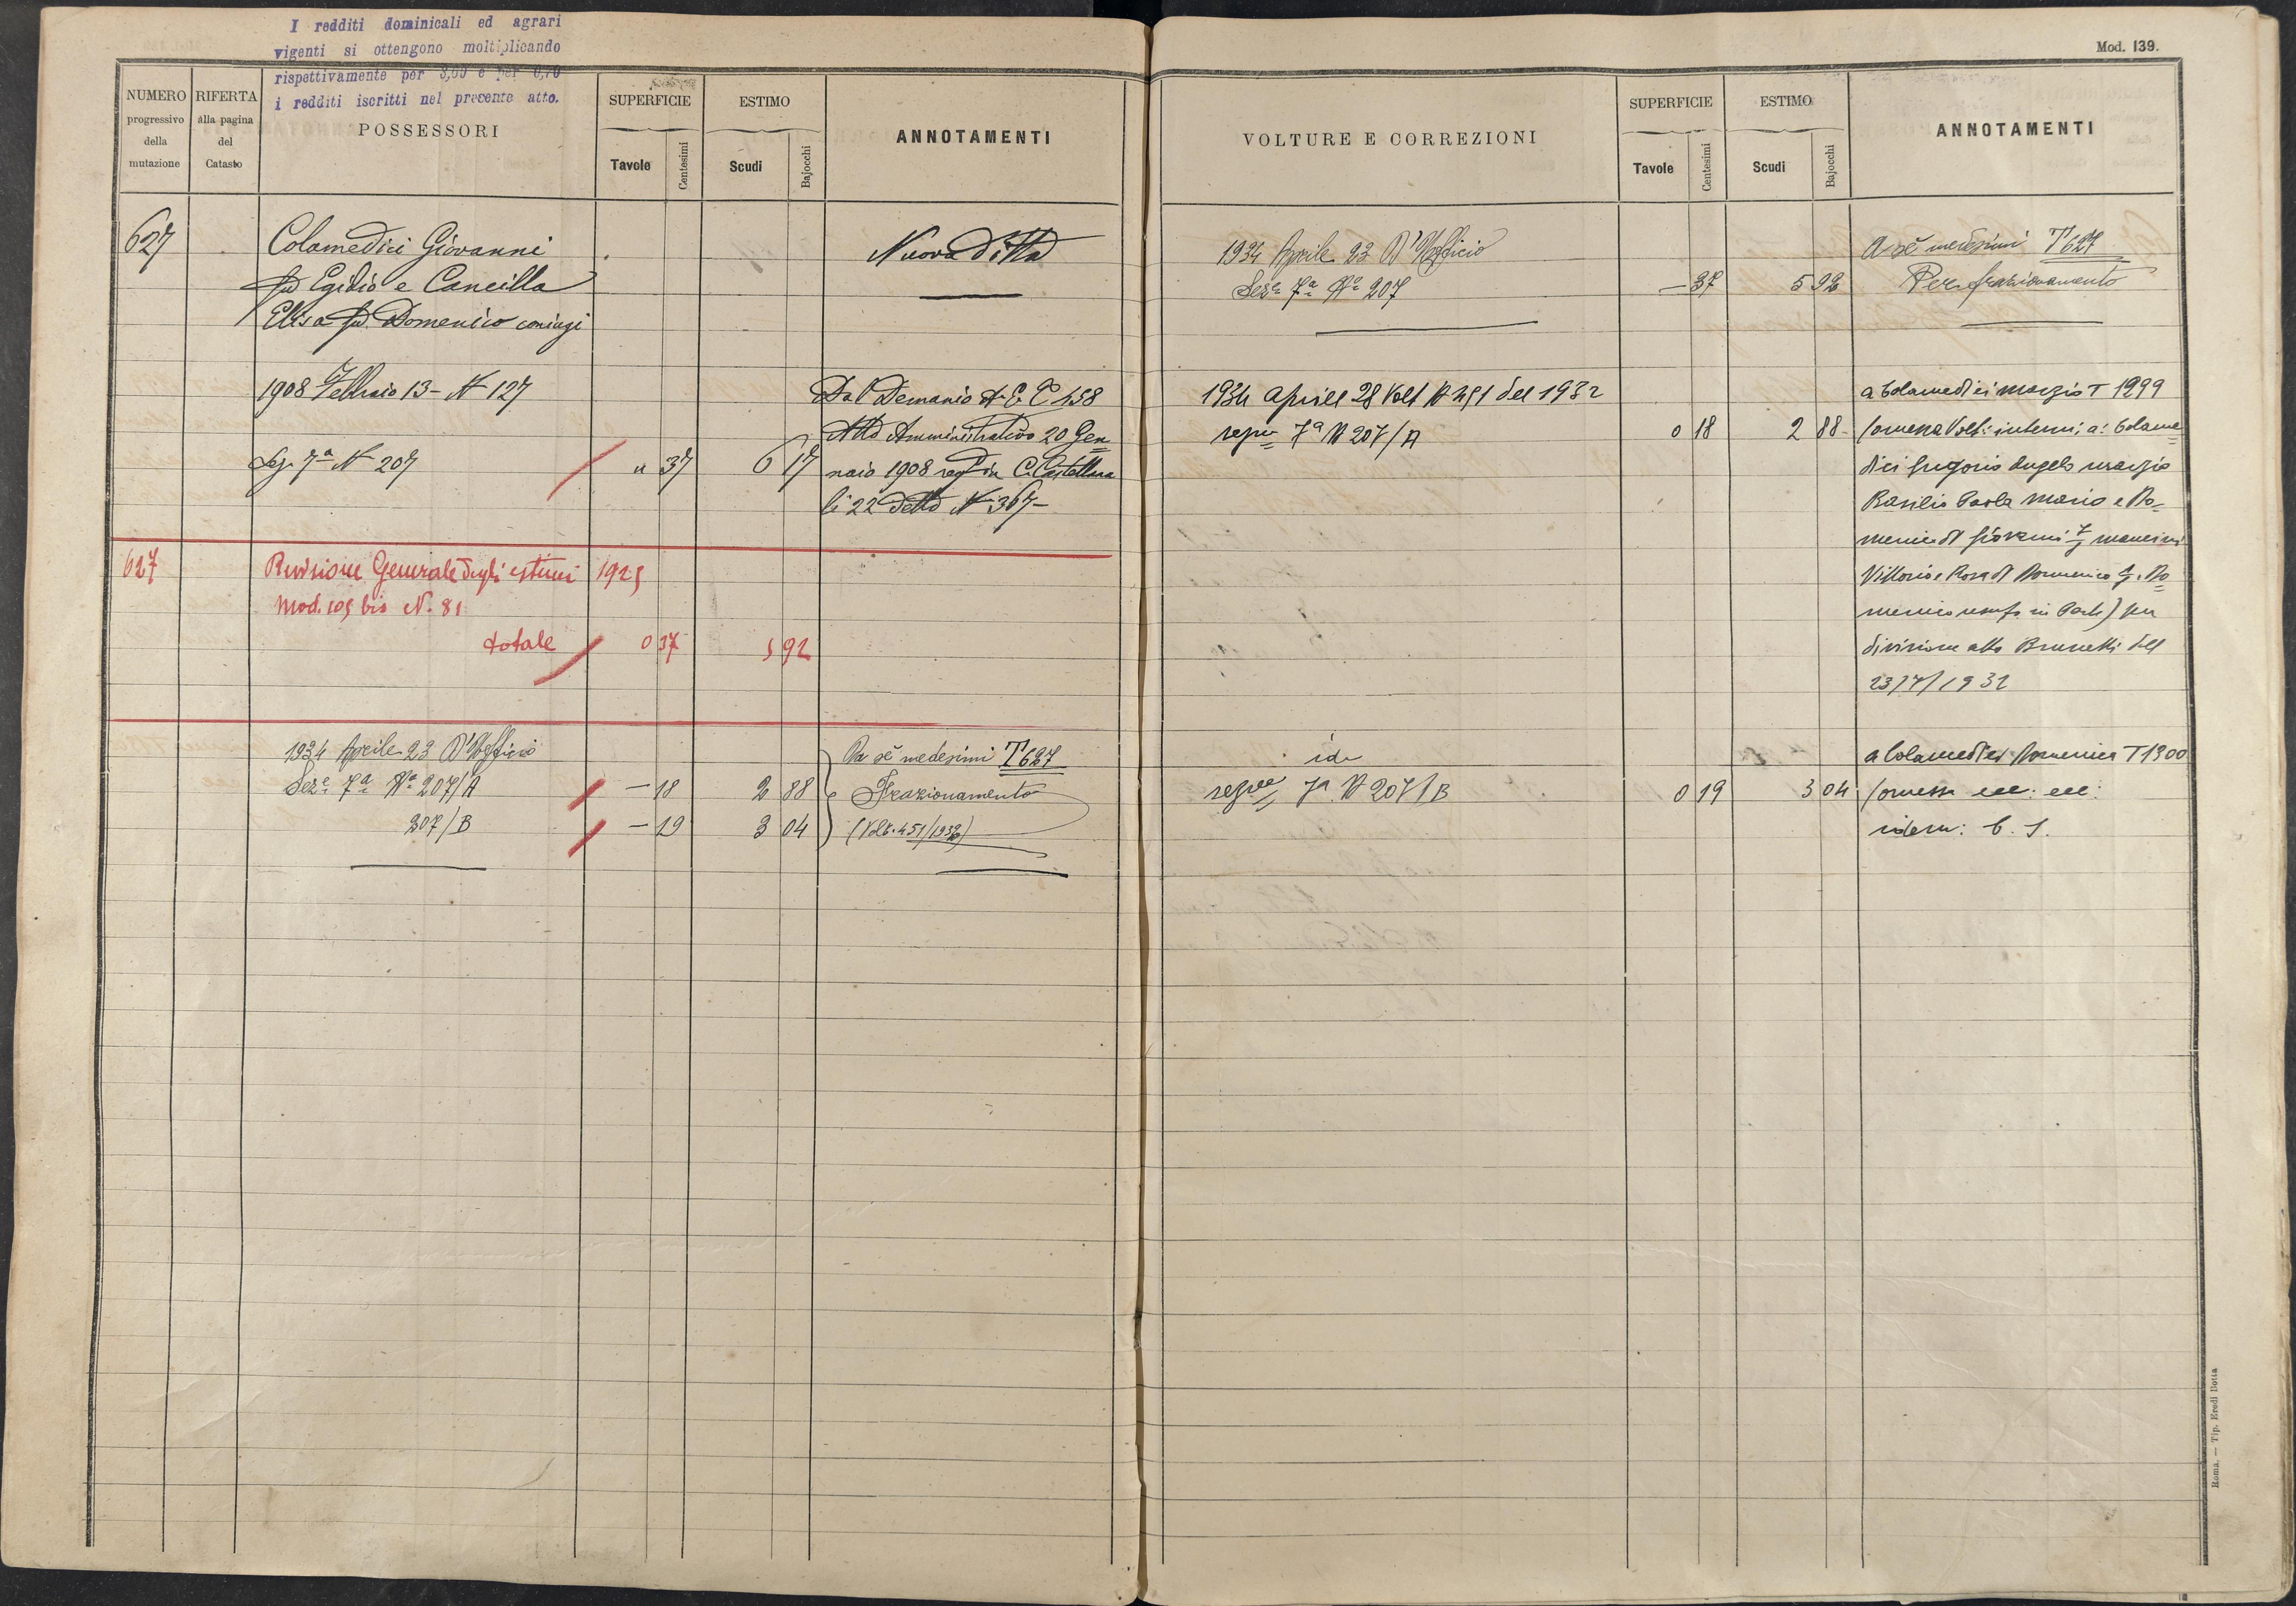 I redditi dominicali ed agrari
vigenti si ottengono moltiplicando
rispettivamente per 3,60 e per 0,70
i redditi iscritti nel presente atto.
NUMERO progressivo della mutazione
RIFERTA alla pagina del Catasto
POSSESSORI
SUPERFICIE
Tavole Centesimi
ESTIMO
Scudi Bajocchi
ANNOTAMENTI
627 Colamedici Giovanni Nuova Ditta
fu Egidio e Cancilla
Elisa fu Domenico coniugi
1908 Febbraio 13 - N 127 Dal Demanio A. E. C 458
Atto Amministrativo 20 Gen
Sez. 7a N 207 " 37 6 17 naio 1908 reg in C. Castellana
li 22 detto N 367-
627 Revisione Generale degli estimi 1925
Mod. 109 bis N. 81
totale 0 37 5 92
1934 Aprile 23 D'Ufficio Da sè medesimi T 627
Sezе 7a No 207/A - 18 2 88 Frazionamento
207/B - 19 3 04 (Volt. 451/1932)
Mod. 139.
VOLTURE E CORREZIONI
SUPERFICIE
Tavole Centesimi
ESTIMO
Scudi Bajocchi
ANNOTAMENTI
1934 Aprile 23 D'Ufficio A sè medesimi T 627
Seze 7a No 207 - 37 5 92 Per frazionamento
1934 Aprile 28 Volt N 451 del 1932 a Colamedici Marzio T 1299
7a N 207/A 0 18 2 88 (omessa Volt: interm: a: Colame
dici Gregorio Angelo Marzio
Basilio Paola Mario e Do=
menico di Giovanni Mancini
Vittorio e Rosa di Domenico e Do=
menico usuf. in Parte) per
divisione atto Brunetti del
23/7/1932
ide a Colamedici Domenico T 1300
7a N 207/B 0 19 3 04 (omessa ecc: ecc:
idem: C. S.
Roma. — Tip. Eredi Botta